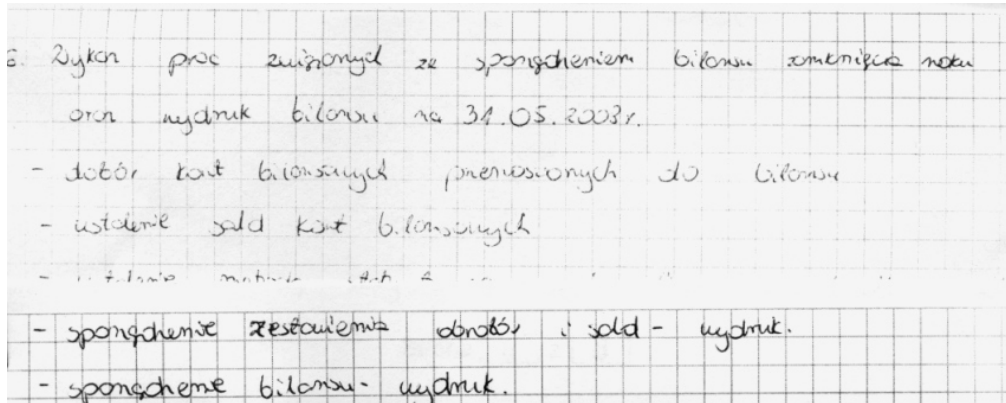 6. Wykaz prac związanych ze sporządzeniem bilansu zamknięcia roku
oraz wydruk bilansu na 31.05.2003r.
- dobór kont bilansowych przenoszonych do bilansu
- ustalenie sald kont bilansowych
- ustalenie
- sporządzenie zestawienia obrotów i sald - wydruk.
- sporządzenie bilansu - wydruk.